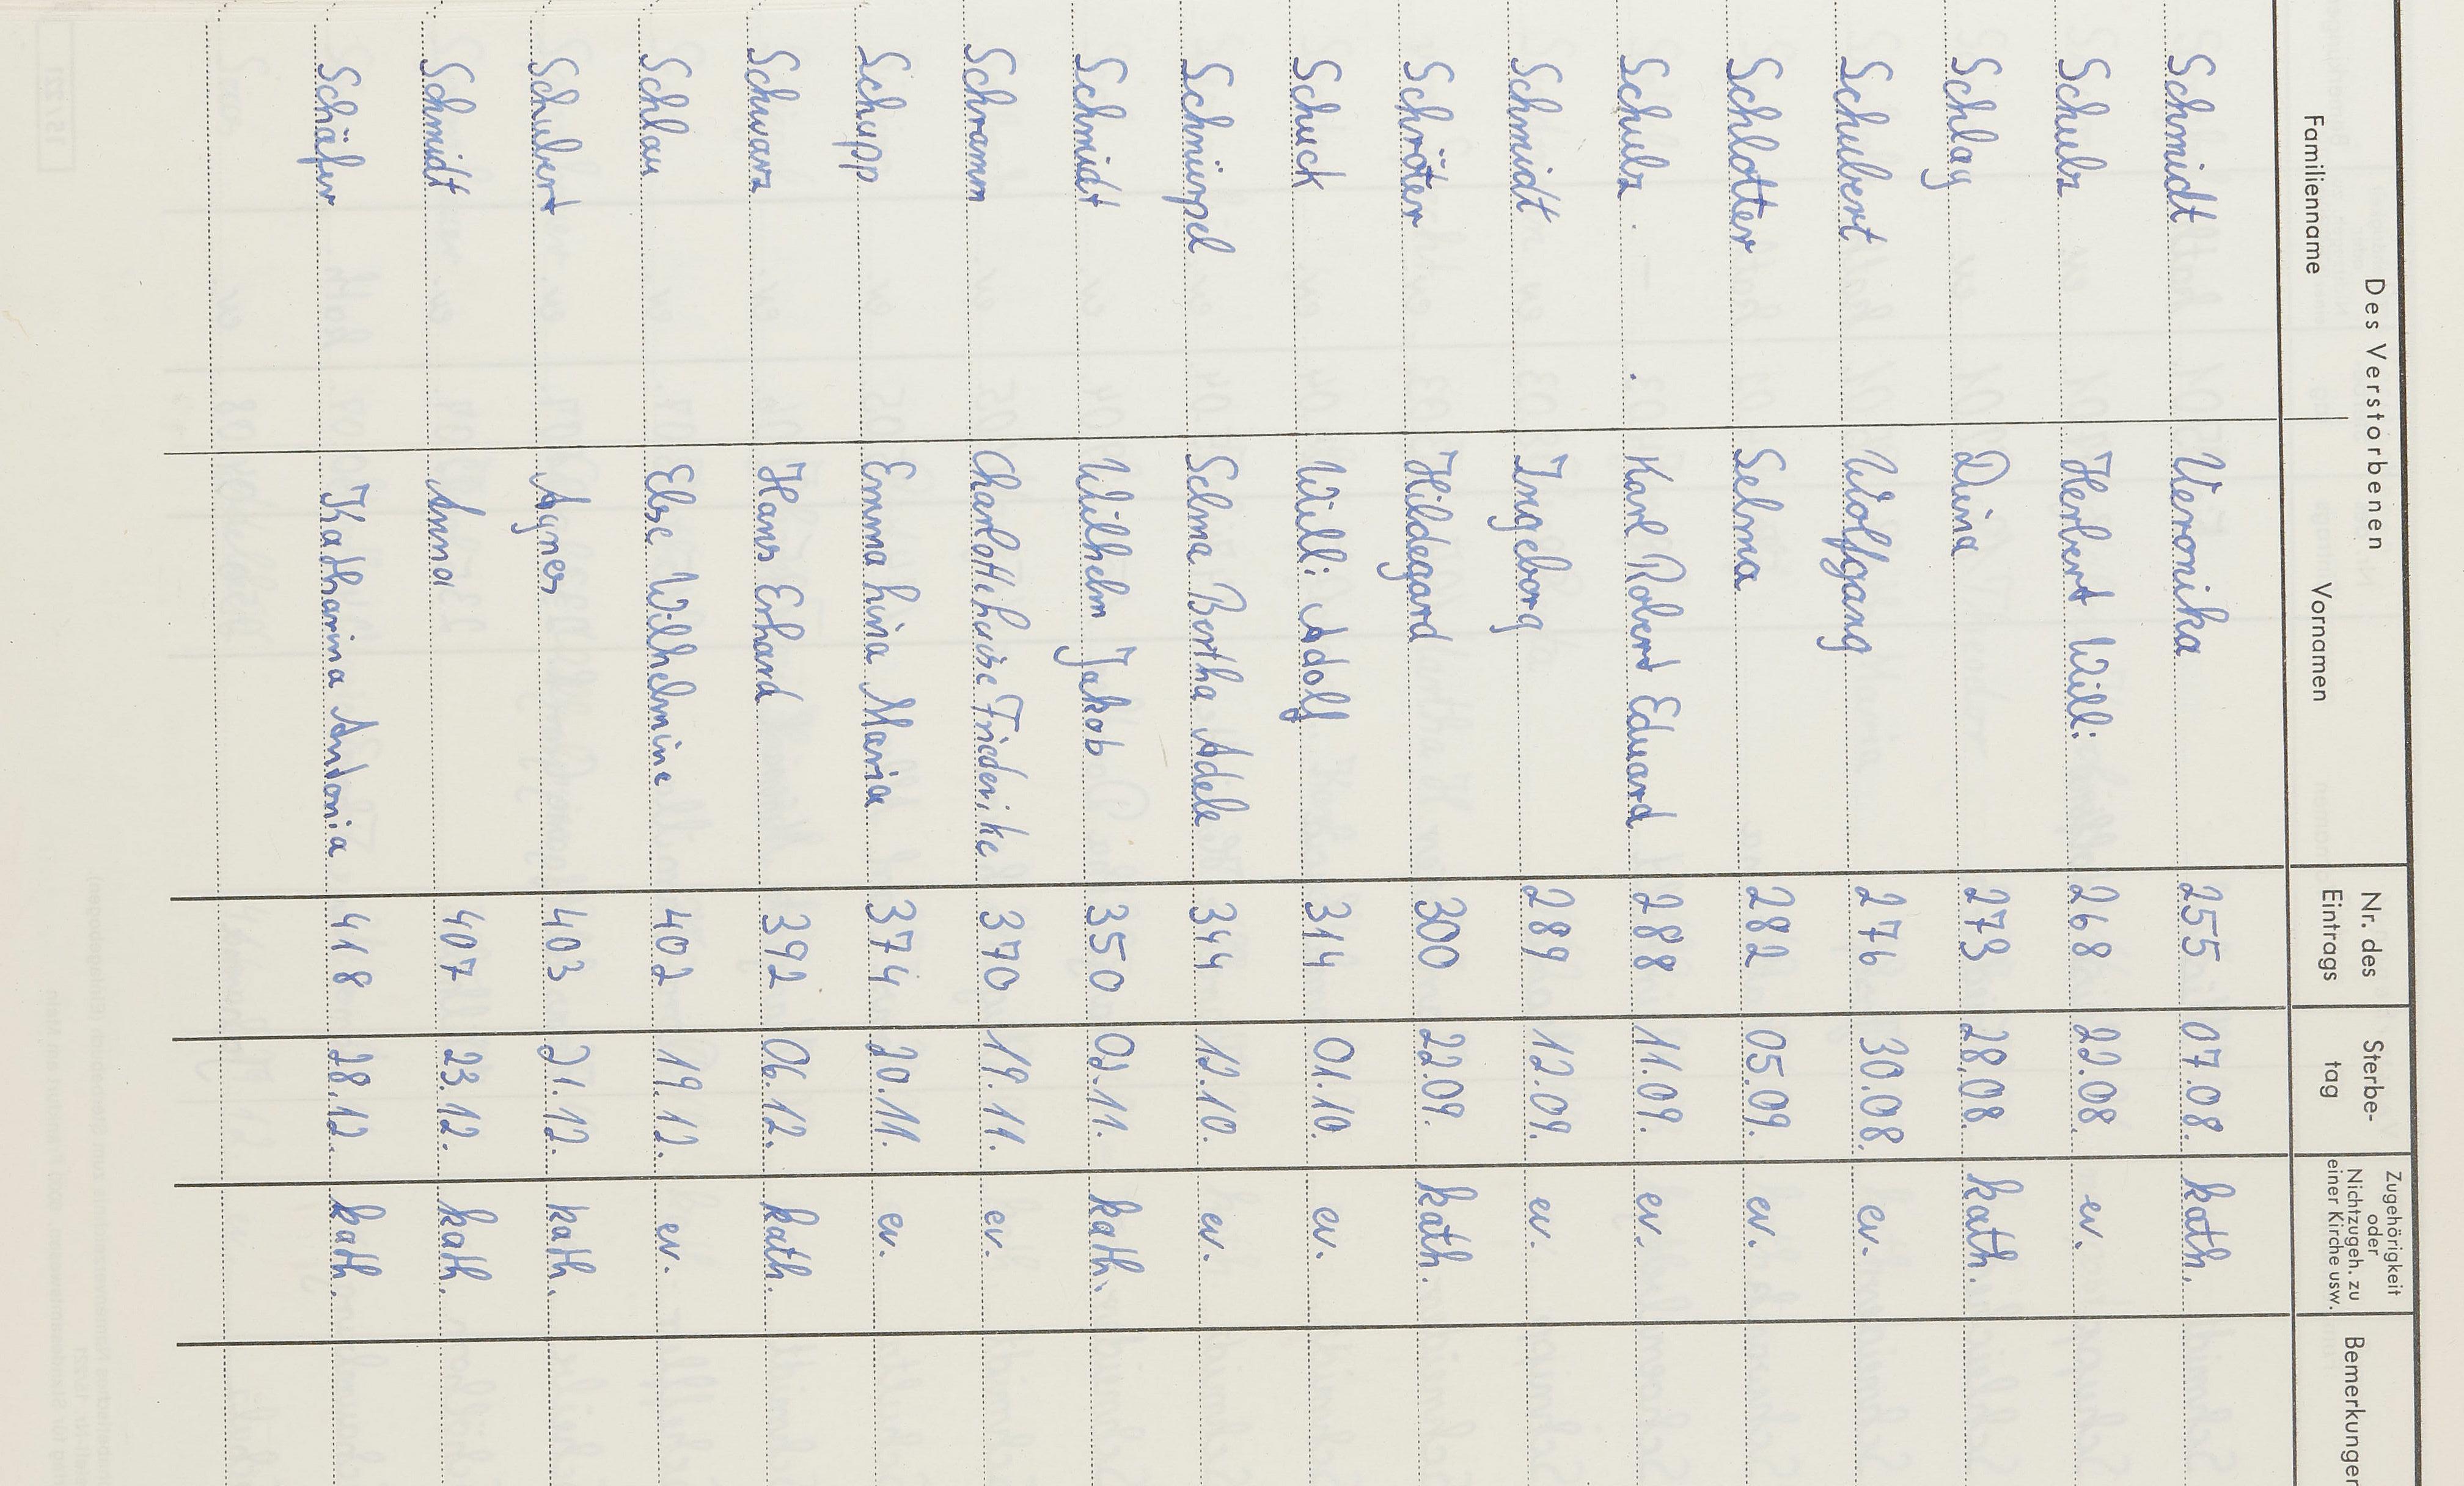 Des Verstorbenen
Familienname Vornamen Nr. des Eintrags Sterbe-tag Zugehörigkeit oder Nichtzugeh. zu einer Kirche usw. Bemerkungen
Schmidt Veronika 255 07.08. kath.
Schulz Herbert Willi 268 22.08. ev.
Schlag Dina 273 28.08. kath.
Schubert Wolfgang 276 30.08. ev.
Schlotter Selma 282 05.09. ev.
Schulz Karl Robert Eduard 288 11.09. ev.
Schmidt Ingeborg 289 12.09. ev.
Schröter Hildegard 300 22.09. kath.
Schuck Willi Adolf 314 01.10. ev.
Schnüpel Selma Bertha Adele 344 12.10. ev.
Schmidt Wilhelm Jakob 350 02.11. kath.
Schramm Charlotte Luise Friederike 370 19.11. ev.
Schupp Emma Lina Maria 374 20.11. ev.
Schwarz Hans Erhard 392 06.12. kath.
Schlau Else Wilhelmine 402 19.12. ev.
Schubert Agnes 403 21.12. kath.
Schmidt Anna 407 23.12. kath.
Schäfer Katharina Antonia 418 28.12. kath.